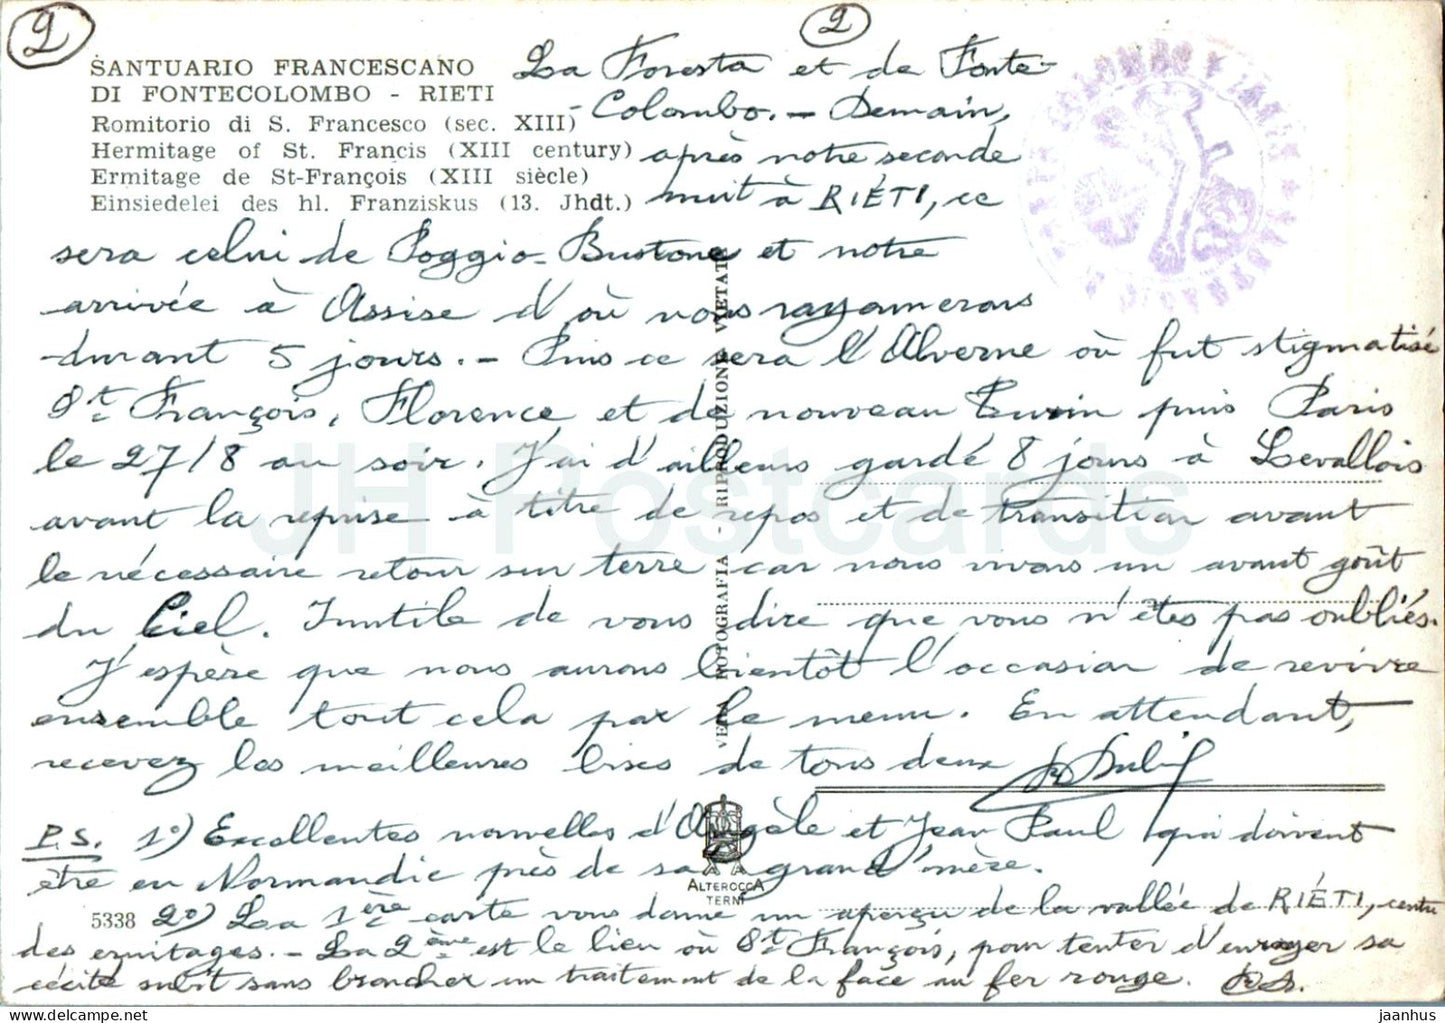 2
2
SANTUARIO FRANCESCANO
DI FONTECOLOMBO - RIETI
Romitorio di S. Francesco (sec. XIII)
Hermitage of St. Francis (XIII century)
Ermitage de St-François (XIII siècle)
Einsiedelei des hl. Franziskus (13. Jhdt.)
La Foresta et de Fonte-
-Colombo. - Demain,
après notre seconde
nuit à RIÉTI, ce
sera celui de Poggio-Bustone et notre
arrivée à Assise d'où nous rayonnerons
durant 5 jours. - Puis ce sera l'Alverne où fut stigmatisé
St François, Florence et de nouveau Turin puis Paris
le 27/8 au soir. J'ai d'ailleurs gardé 8 jours à Levallois
avant la reprise à titre de repos et de transition avant
le nécessaire retour sur terre car nous vivons un avant goût
du Ciel. Inutile de vous dire que vous n'êtes pas oubliés.
J'espère que nous aurons bientôt l'occasion de revivre
ensemble tout cela par le menu. En attendant,
recevez les meilleures bises de tous deux
P.S. 1°) Excellentes nouvelles d'Angèle et Jean Paul qui doivent
être en Normandie près de sa grand'mère.
2°) La 1ère carte vous donne un aperçu de la vallée de RIÉTI, centre
des ermitages. - La 2ème est le lieu où St François, pour tenter d'enrayer sa
cécité subit sans broncher un traitement de la face au fer rouge.
VERA FOTOGRAFIA - RIPRODUZIONE VIETATA
ALTEROCCA
TERNI
5338
JH Postcards
jaanhus